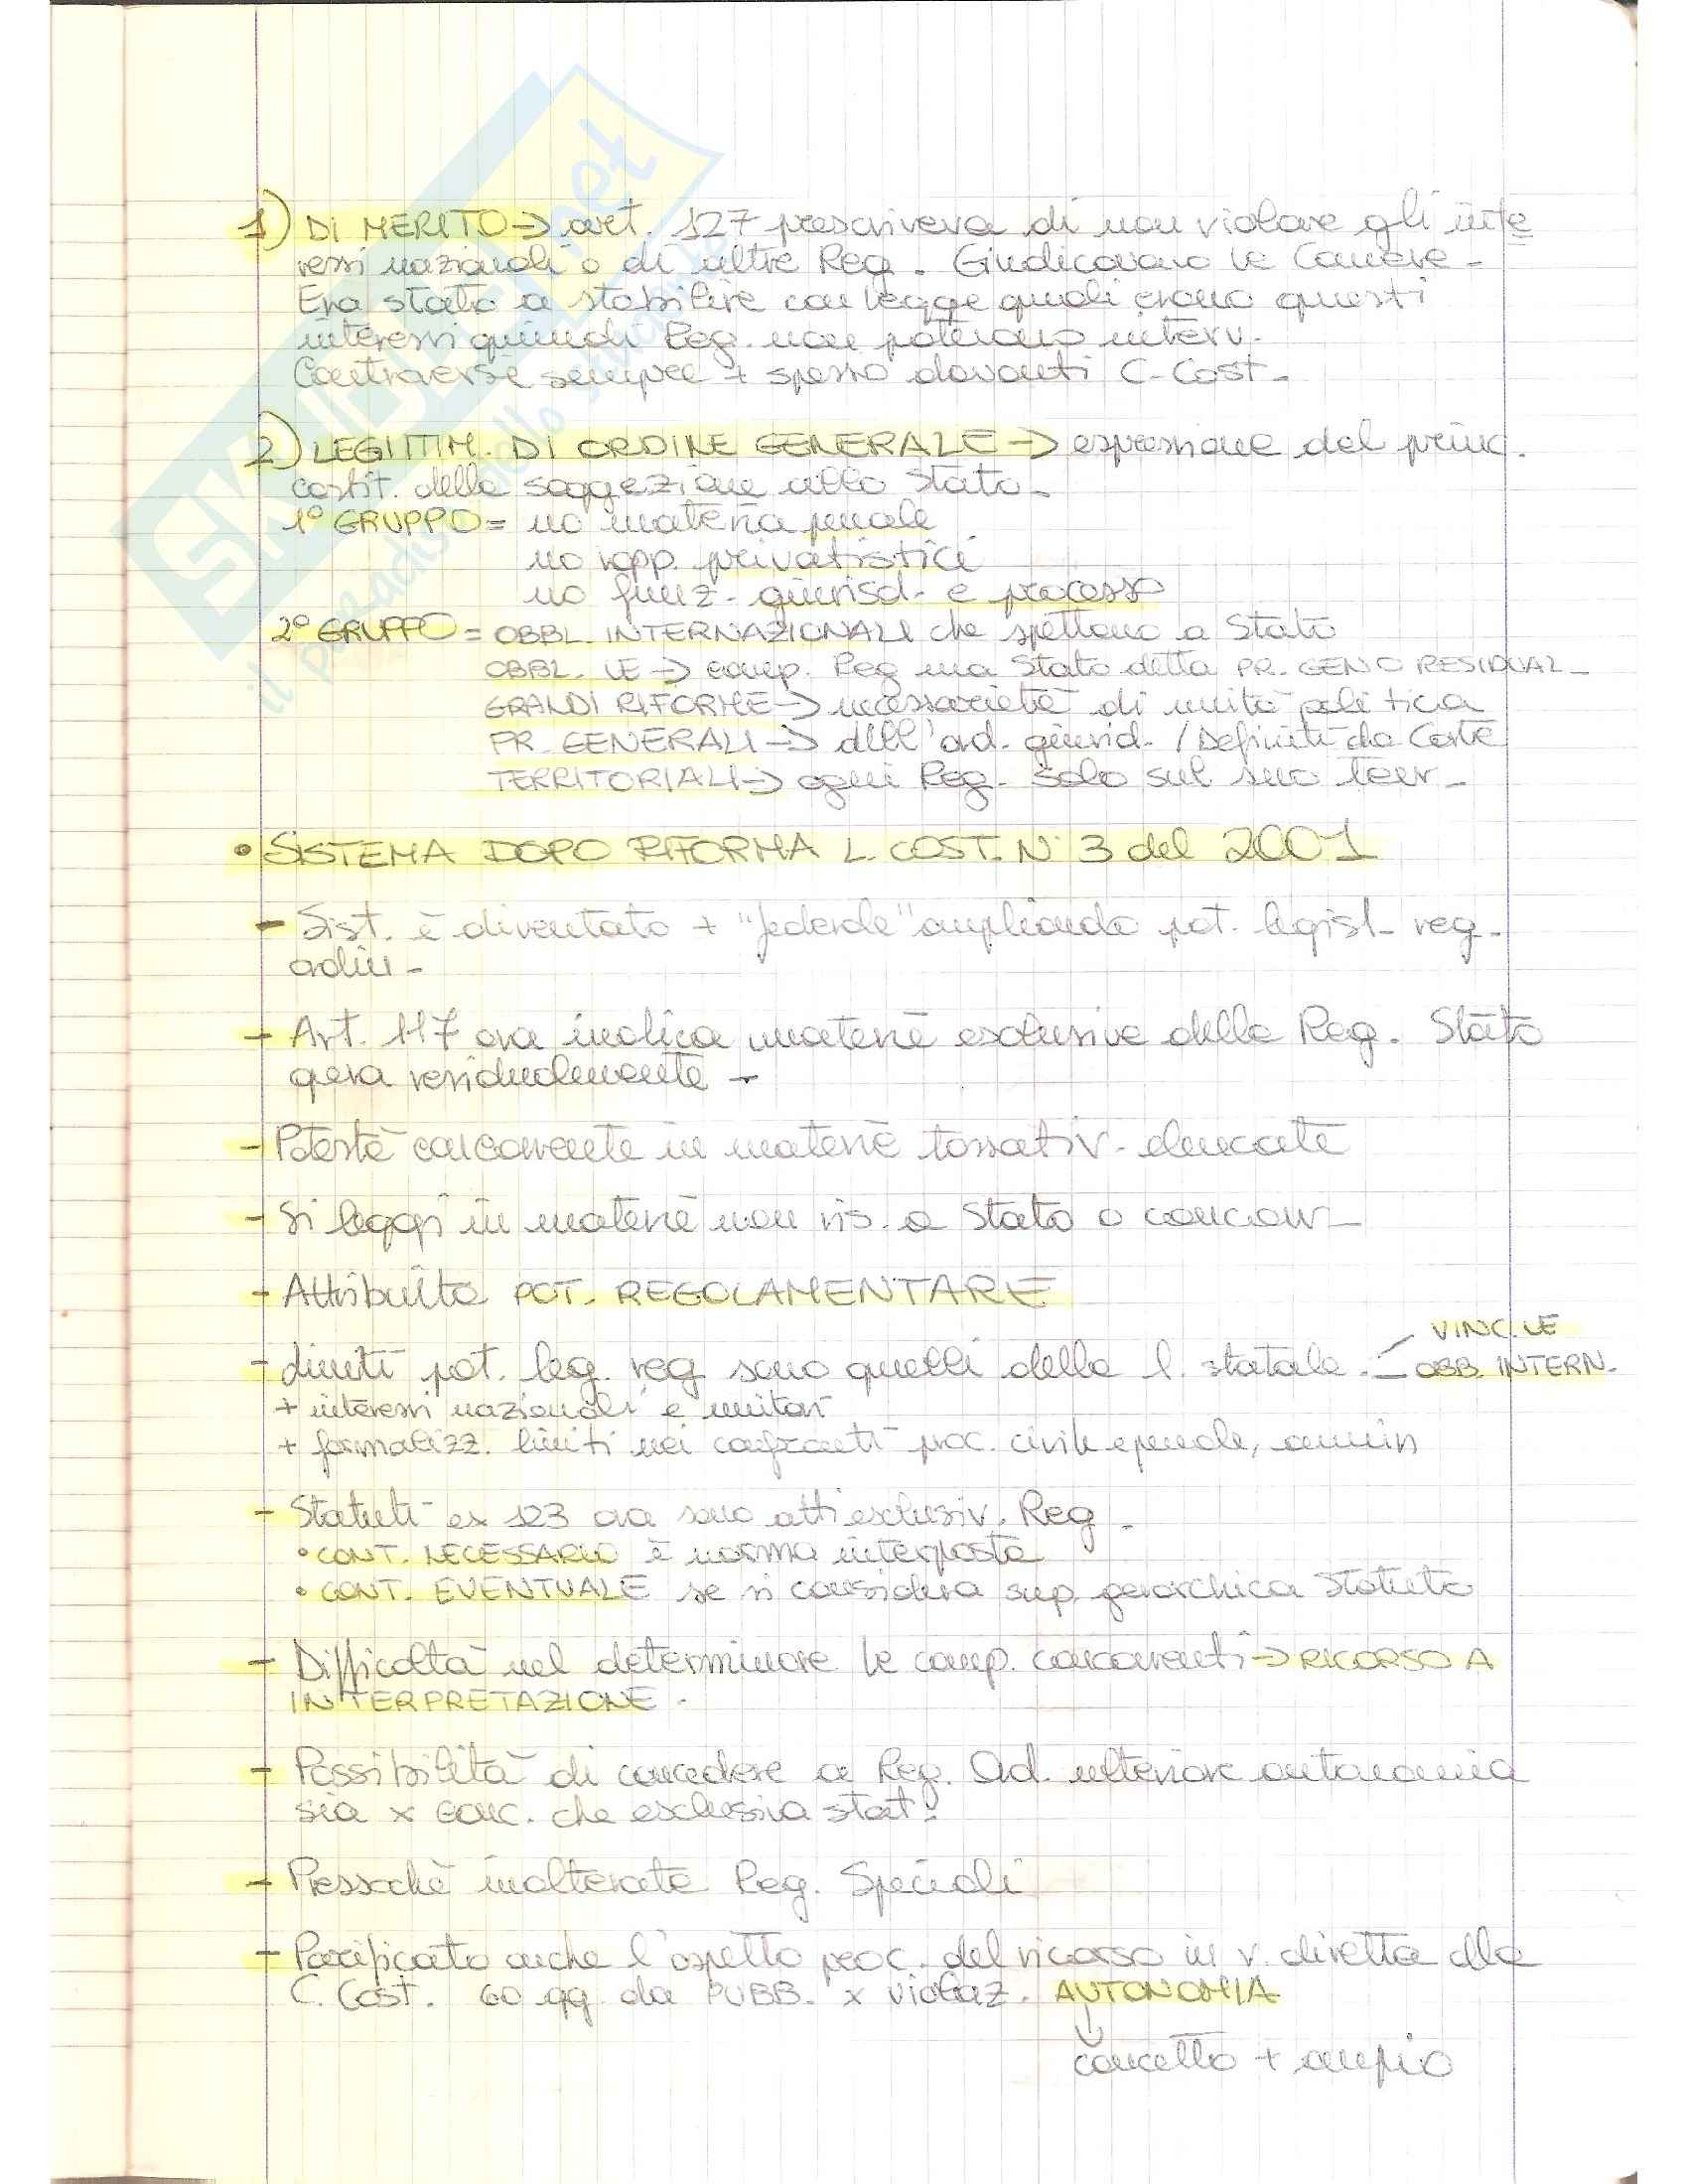 SKUOLA.net
il paradiso dello studente
1) DI MERITO → art. 127 prescriveva di non violare gli inte
ressi nazionali o di altre Reg. Giudicavano le Camere.
Era stato a stabilire con legge quali erano questi
interessi quindi Reg. non potevano interv.
Controversie sempre + spesso davanti C. Cost.
2) LEGITTIM. DI ORDINE GENERALE → espressione del princ.
costit. della soggezione allo Stato.
1° GRUPPO = no materia penale
no rapp. privatistici
no funz. giurisd. e processo
2° GRUPPO = OBBL. INTERNAZIONALI che spettano a Stato
OBBL. UE → comp. Reg ma Stato detta PR. GEN O RESIDUAL.
GRANDI RIFORME → necessarietà di unità politica
PR. GENERALI → dell'ord. giurid. / Definiti da Corte
TERRITORIALI → ogni Reg. solo sul suo terr.
• SISTEMA DOPO RIFORMA L. COST. N° 3 del 2001
- Sist. è diventato + "federale" ampliando pot. legisl. reg.
ordin.
- Art. 117 ora indica materie esclusive delle Reg. Stato
opera residualmente.
- Potestà concorrente in materie tassativ. elencate
- Si leggi in materie non ris. a Stato o concorr.
- Attribuita POT. REGOLAMENTARE
- limiti pot. leg. reg sono quelli della l. statale. VINC. UE
OBB. INTERN.
+ interessi nazionali e unitari
+ formalizz. limiti nei confronti proc. civile e penale, ammin
- Statuti ex 123 ora sono atti esclusiv. Reg.
• CONT. NECESSARIO è norma interposta
• CONT. EVENTUALE se si considera sup. gerarchica Statuto
- Difficoltà nel determinare le comp. concorrenti → RICORSO A
INTERPRETAZIONE.
- Possibilità di concedere a Reg. Ord. ulteriore autonomia
sia x conc. che esclusiva stat.
- Pressoché inalterate Reg. Speciali
- Parificato anche l'aspetto proc. del ricorso in v. diretta alla
C. Cost. 60 gg da PUBB. x violaz. AUTONOMIA
↓
concetto + ampio